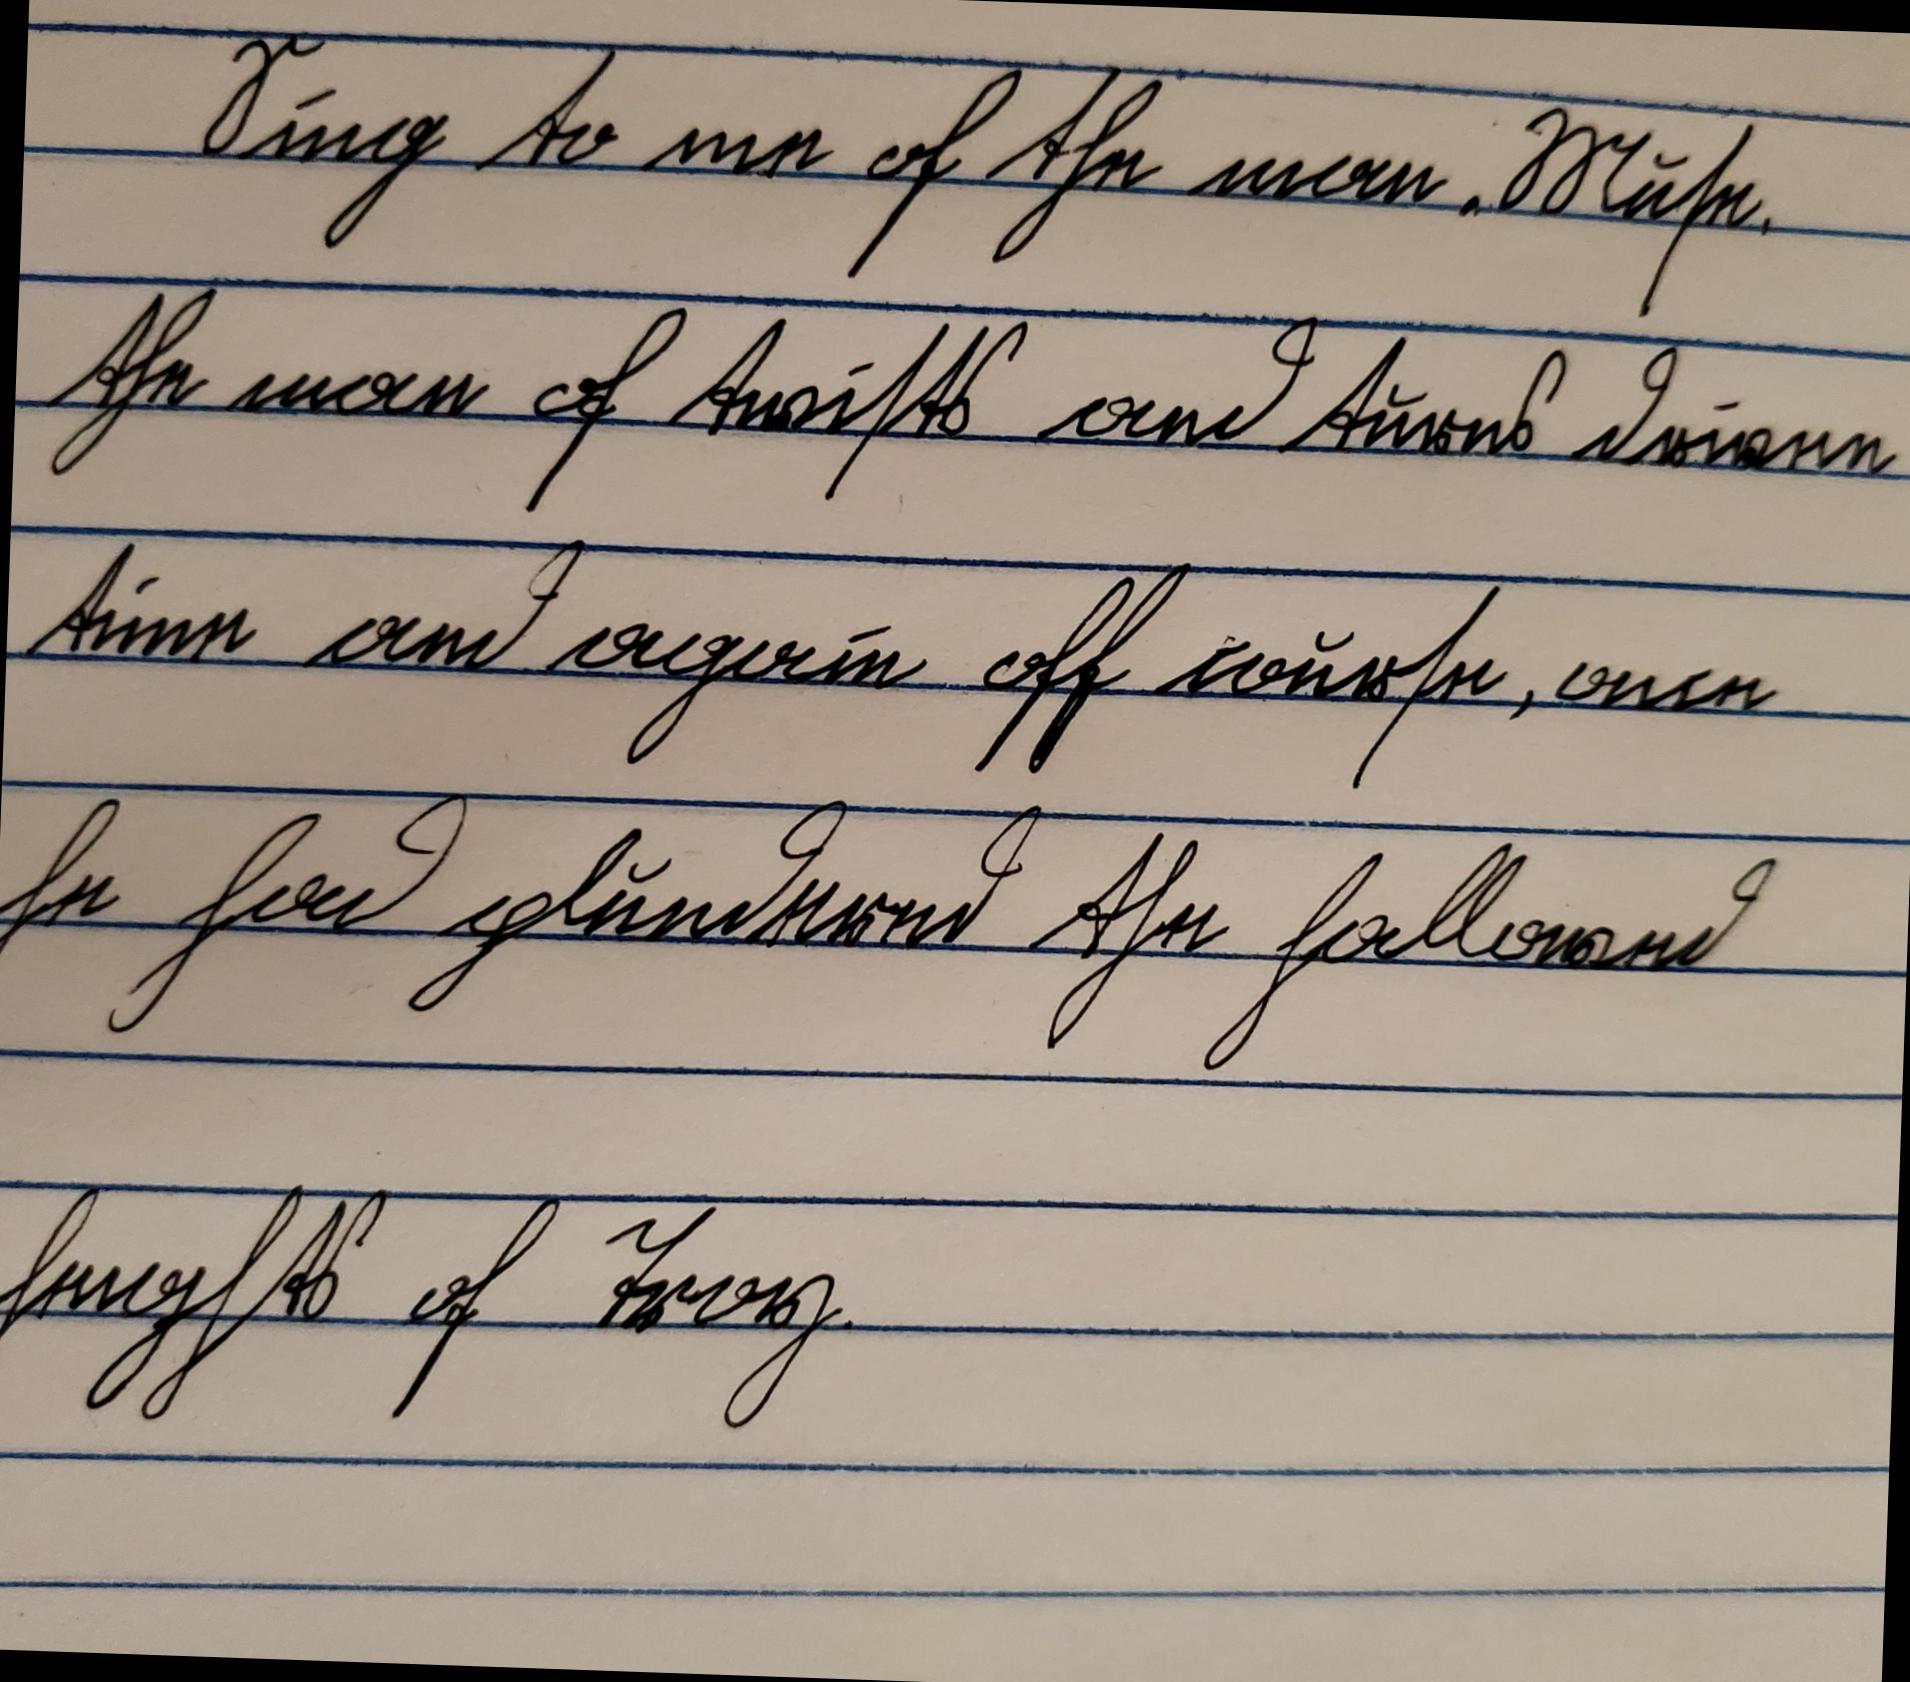 Sing to me of the man. Muse,
the man of twists and turns driven
time and again off course, once
he had glundered the hallowed
heights of Troy.